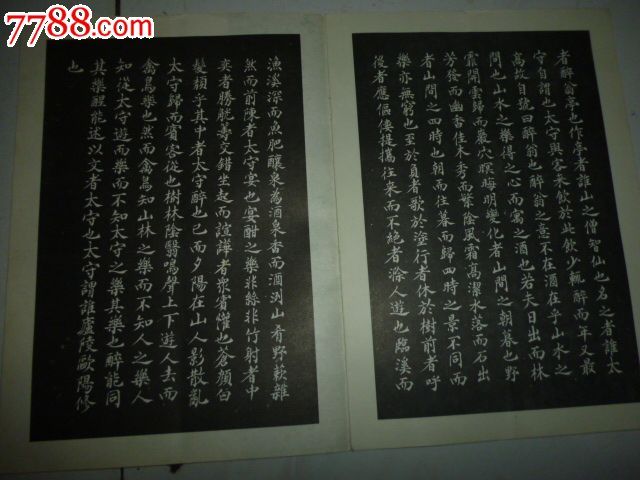 7788.com
者醉翁亭也作亭者誰山之僧智仙也名之者誰太
守自謂也太守與客來飲於此飲少輒醉而年又最
高故自號曰醉翁也醉翁之意不在酒在乎山水之
間也山水之樂得之心而寓之酒也若夫日出而林
霏開雲歸而巖穴暝晦明變化者山間之朝暮也野
芳發而幽香佳木秀而繁陰風霜高潔水落而石出
者山間之四時也朝而往暮而歸四時之景不同而
樂亦無窮也至於負者歌於塗行者休於樹前者呼
後者應傴僂提攜往來而不絕者滁人遊也臨溪而
漁溪深而魚肥釀泉為酒泉香而酒洌山肴野蔌雜
然而前陳者太守宴也宴酣之樂非絲非竹射者中
奕者勝觥籌交錯坐起而諠譁者眾賓懽也蒼顏白
髮頹乎其中者太守醉也已而夕陽在山人影散亂
太守歸而賓客從也樹林陰翳鳴聲上下遊人去而
禽鳥樂也然而禽鳥知山林之樂而不知人之樂人
知從太守遊而樂而不知太守之樂其樂也醉能同
其樂醒能述以文者太守也太守謂誰廬陵歐陽修
也